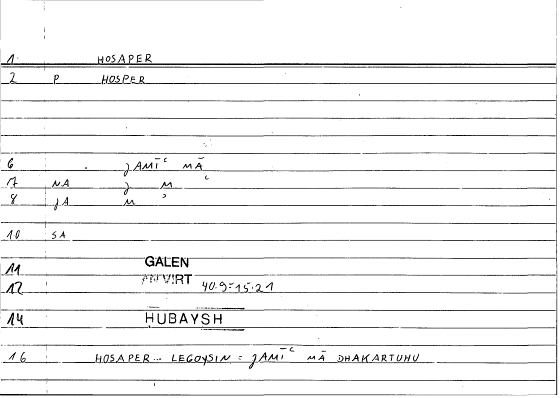 1 HOSAPER
2 P HOSPER
6 ȷAMĪʿ MĀ
7 NA ȷ M ʿ
8 ȷA M ʾ
10 SA
11 GALEN
12 AN VIRT 40.9=15.21
14 HUBAYSH
16 HOSAPER... LEGOYSIN = ȷAMĪʿ MĀ DHAKARTUHU